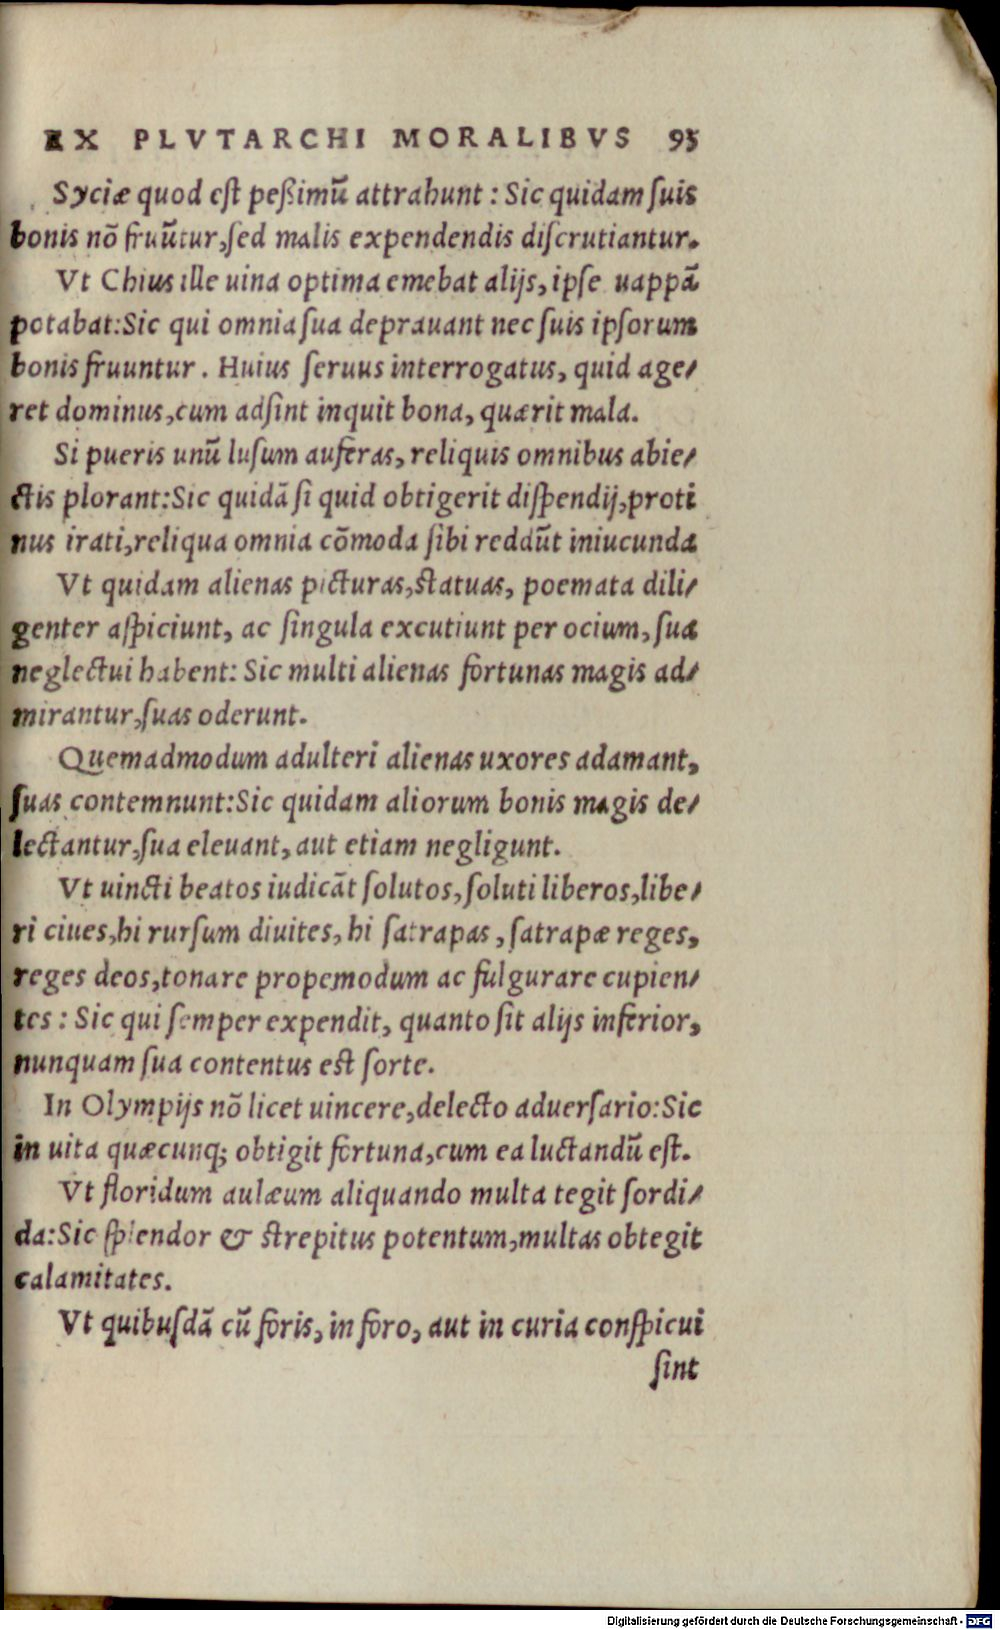 EX PLVTARCHI MORALIBVS 95
Syciæ quod est peßimũ attrahunt : Sic quidam suis
bonis nõ fruũtur, sed malis expendendis discrutiantur.
Vt Chius ille uina optima emebat alijs, ipse uappã
potabat: Sic qui omnia sua deprauant nec suis ipsorum
bonis fruuntur . Huius seruus interrogatus, quid age/
ret dominus, cum adsint inquit bona, quærit mala.
Si pueris unũ lusum auferas, reliquis omnibus abie/
ctis plorant: Sic quidã si quid obtigerit dispendij, proti
nus irati, reliqua omnia cõmoda sibi reddũt iniucunda
Vt quidam alienas picturas, statuas, poemata dili/
genter aspiciunt, ac singula excutiunt per ocium, sua
neglectui habent: Sic multi alienas fortunas magis ad/
mirantur, suas oderunt.
Quemadmodum adulteri alienas uxores adamant,
suas contemnunt: Sic quidam aliorum bonis magis de/
lectantur, sua eleuant, aut etiam negligunt.
Vt uincti beatos iudicãt solutos, soluti liberos, libe/
ri ciues, hi rursum diuites, hi satrapas , satrapæ reges,
reges deos, tonare propemodum ac fulgurare cupien/
tes : Sic qui semper expendit, quanto sit alijs inferior,
nunquam sua contentus est sorte.
In Olympijs nõ licet uincere, delecto aduersario: Sic
in uita quæcunq; obtigit fortuna, cum ea luctandũ est.
Vt floridum aulæum aliquando multa tegit sordi/
da: Sic splendor & strepitus potentum, multas obtegit
calamitates.
Vt quibusdã cũ foris, in foro, aut in curia conspicui
sint
Digitalisierung gefördert durch die Deutsche Forschungsgemeinschaft - DFG